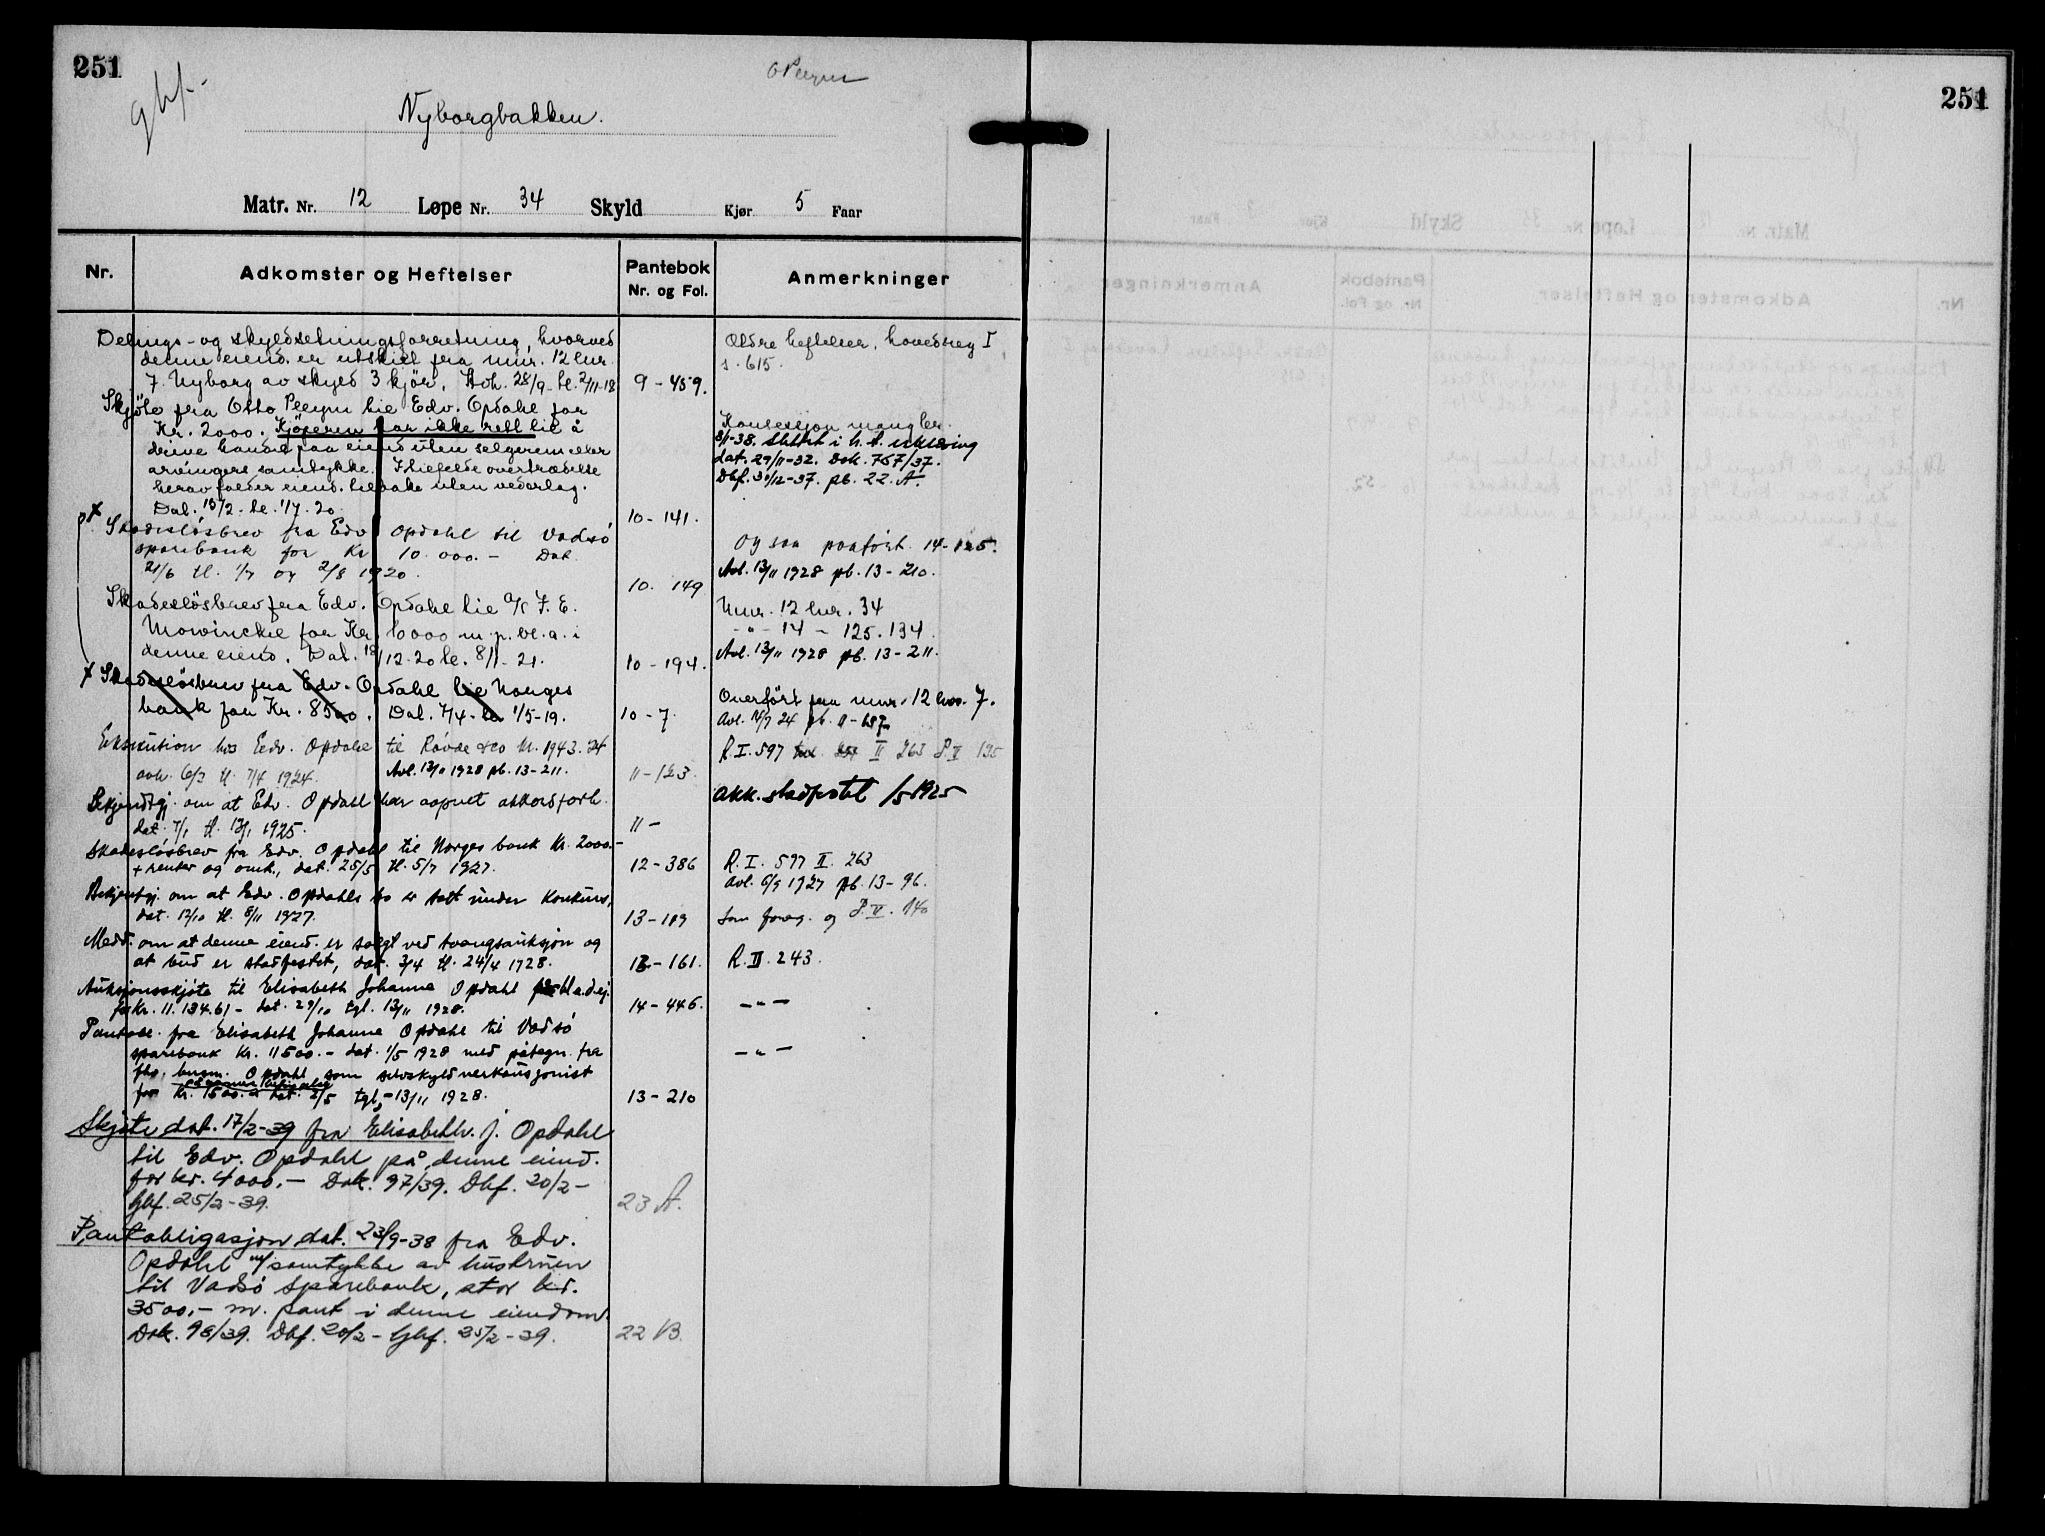 251
ghf.
O Peeyn
Nyborgbakken.
Matr. Nr. 12 Løpe Nr. 34 Skyld Kjør 5 Faar
Nr. Adkomster og Heftelser Pantebok Nr. og Fol. Anmerkninger
Delings- og skyldsetningsforretning, hvorved
denne eiend. er utskilt fra mnr. 12 lnr.
7. Nyborg av skyld 3 kjør. Avh. 28/9 - tl. 2/11-18 9-459.
Ældre heftelser, hovedreg I
s. 615.
Skjøte fra Otto Peeyn til Edv. Opdahl for
Kr. 2000. Kjøperen har ikke rett til å
drive handel paa eiend uten selgerens eller
arvingers samtykke. I tilfelde overtrædelse
herav falder eiend. tilbake uten vederlag.
Dat. 15/2 - tl. 1/7. 20. 10-141.
Konsesjon mangler.
8/1-38. Slettet i h. t. erklæring
dat. 29/11-32. Dok. 757/37.
Dbf. 30/12-37. pb. 22. A.
x Skadesløsbrev fra Edv Opdahl til Vadsø
sparebank for Kr 10.000.- Dat
21/6 tl. 1/7 og 2/8 1920. 10. 149
Og saa paaført 14-125.
Avl. 13/11 1928 pb. 13-210.
Skadesløsbrev fra Edv. Opdahl til a/s J. E.
Mowinckel for Kr. 10000 m. p. bl. a. i
denne eiend. Dat. 18/12-20 tl. 8/1-21. 10-194.
Mnr. 12 lnr. 34
-"- 14 - 125. 134.
Avl. 13/11 1928 pb. 13-211.
x Skadesløsbrev fra Edv. Opdahl til Norges
bank for Kr. 8500. Dat. 7/4 - tl. 1/5-19. 10-7.
Overført fra mnr. 12 lnr. 7.
Avl. 14/7 24 pb. 11-687
Eksekution hos Edv. Opdahl til Røvde & co Kr. 1943.24
avh. 6/3 tl. 7/4 1924. Avl. 13/11 1928 pb. 13-211. 11-123.
R. I. 597 II 263 P. II 135
Bekjendtgj. om at Edv. Opdahl har aapnet akkordforh.
dat. 7/1 tl. 13/1 1925. 11-
akk. stadfestet /5 1925
Skadesløsbrev fra Edv. Opdahl til Norges bank Kr. 2000.-
+ renter og omk., dat. 25/5 tl. 5/7 1927. 12-386
R. I. 597 II. 263
avl. 6/9 1927 pb. 13-96.
Bekjentgj. om at Edv. Opdahls bo er satt under konkurs,
dat. 12/10 tl. 8/11 1927. 13-109
som foreg. og P. II. 140
Medd. om at denne eiend. er solgt ved tvangsauksjon og
at bud er stadfestet, dat. 3/4 tl. 24/4 1928. 13-161.
R. II. 243.
Auksjonsskjøte til Elisabeth Johanne Opdahl på bl. a. d. ej.
for Kr. 11.134.61 - dat. 29/10 tgl. 13/11 1928. 14-446.
-"-
Pantobl. fra Elisabeth Johanne Opdahl til Vadsø
sparebank Kr. 11500.- dat. 1/5 1928 med påtegn. fra
fhv. husm. Opdahl som selvskyldnerkausjonist
for Kr. 1500.- dat. 2/5 tgl. 13/11 1928. 13-210
-"-
Skjøte dat. 17/2-39 fra Elisabeth. J. Opdahl
til Edv. Opdahl på denne eiend.
for kr. 4000.- Dok. 97/39. Dbf. 20/2 -
Ghf. 25/2-39. 23 A.
Pantobligasjon dat. 23/9-38 fra Edv.
Opdahl m/samtykke av hustruen
til Vadsø Sparebank, stor kr.
3500.- m. pant i denne eiendom.
Dok. 98/39. Dbf. 20/2 - Ghf. 25/2-39. 22 B.
251